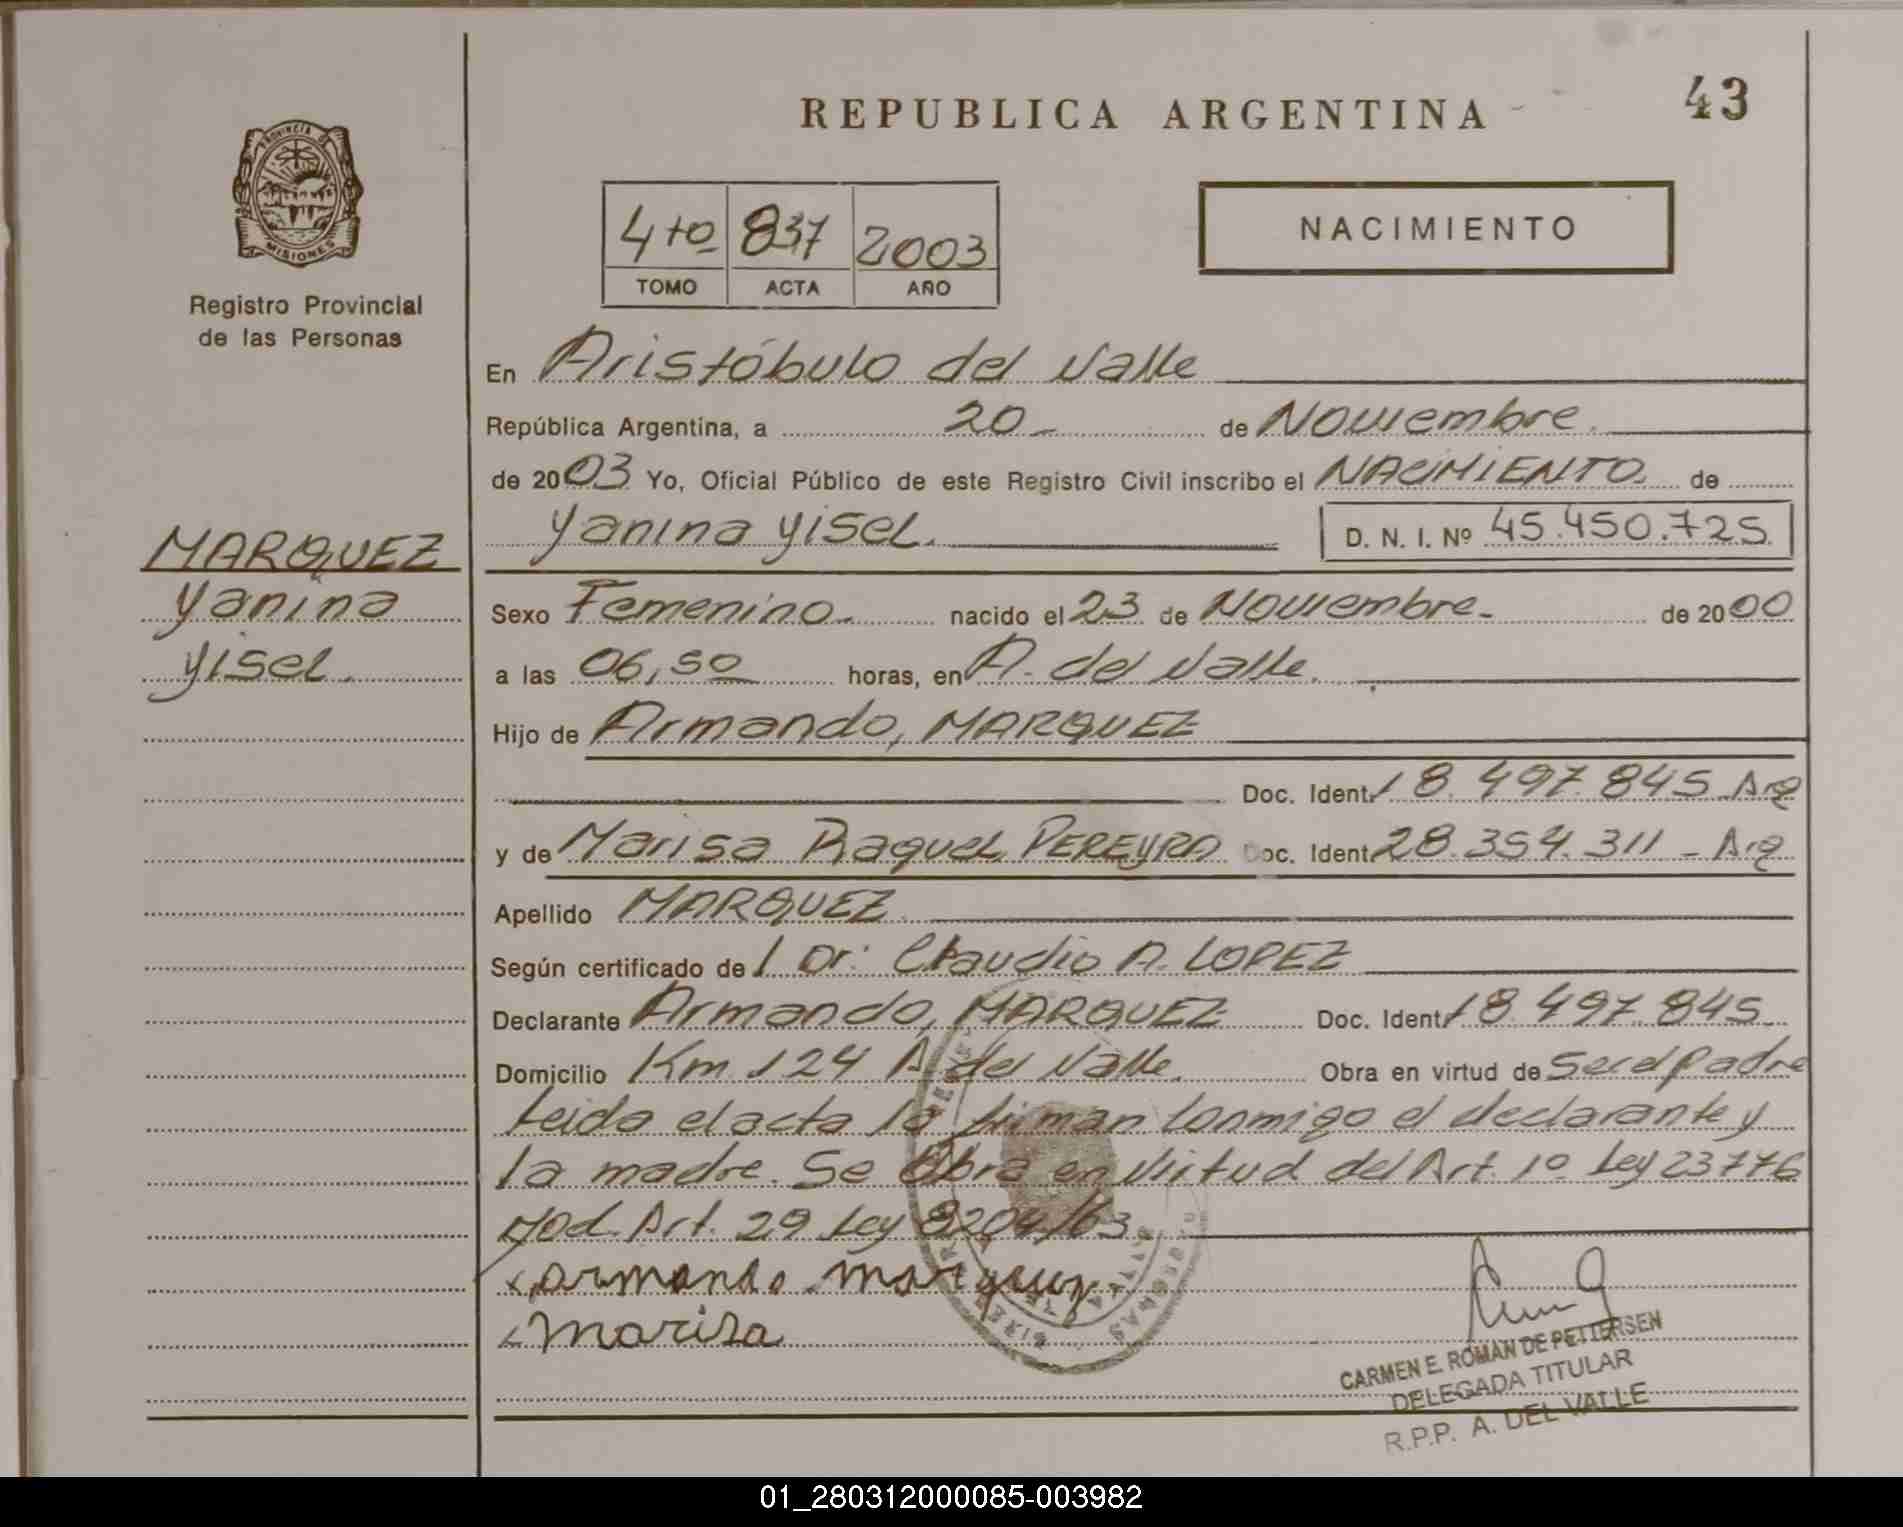 REPUBLICA ARGENTINA
43
PROVINCIA DE
MISIONES
Registro Provincial
de las Personas
4to 837 2003
TOMO ACTA AÑO
NACIMIENTO
En Aristóbulo del Valle
República Argentina, a 20 de Noviembre.
de 2003 Yo, Oficial Público de este Registro Civil inscribo el NACIMIENTO. de
Yanina Yisel. D. N. I. Nº 45.450.725
MARQUEZ
Yanina
Yisel.
Sexo Femenino. nacido el 23 de Noviembre. de 2000
a las 06,50 horas, en A. del Valle.
Hijo de Armando, MARQUEZ
Doc. Ident. 18.497.845 Arg
y de Marisa Raquel PEREYRA Doc. Ident. 28.354.311 - Arg
Apellido MARQUEZ
Según certificado de l Dr: Claudio A. LOPEZ
Declarante Armando, MARQUEZ Doc. Ident. 18.497.845
Domicilio Km. 124 A. del Valle. Obra en virtud de Ser el padre
Leida el acta la firman conmigo el declarante y
la madre. Se obra en virtud del Art. 1º Ley 23776
Mod. Art. 29 Ley 8204/63
x armando marquez
x marisa
CARMEN E. ROMAN DE PETTERSEN
DELEGADA TITULAR
R.P.P. A. DEL VALLE
01_280312000085-003982